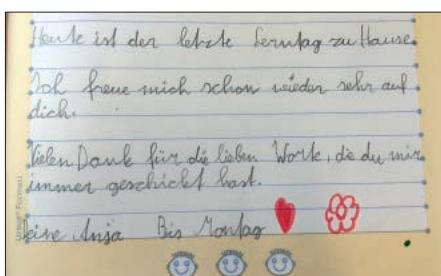 Heute ist der letzte Lerntag zu Hause.
Ich freue mich schon wieder sehr auf
dich.
Vielen Dank für die lieben Worte, die du mir
immer geschickt hast.
Deine Anja Bis Montag